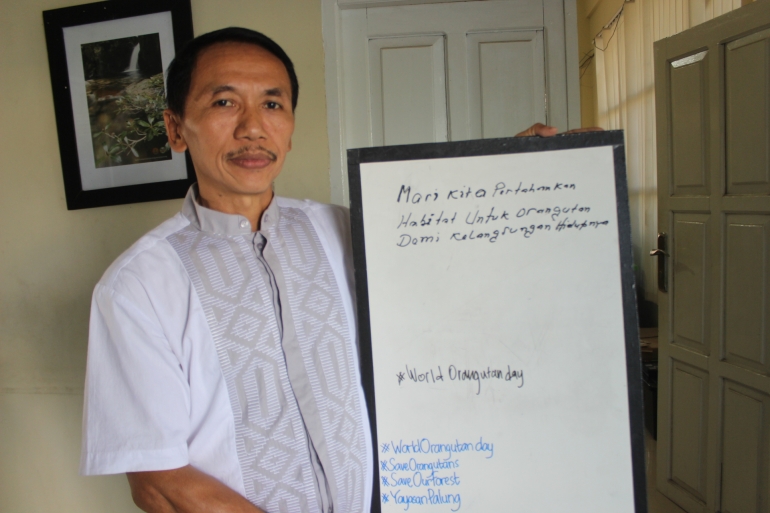 Mari Kita Pertahankan
Habitat Untuk Orangutan
Demi Kelangsungan Hidupnya
*World Orangutan day
*World Orangutan day
*Save Orangutans
*Save Our Forest
*Yayasan Palung